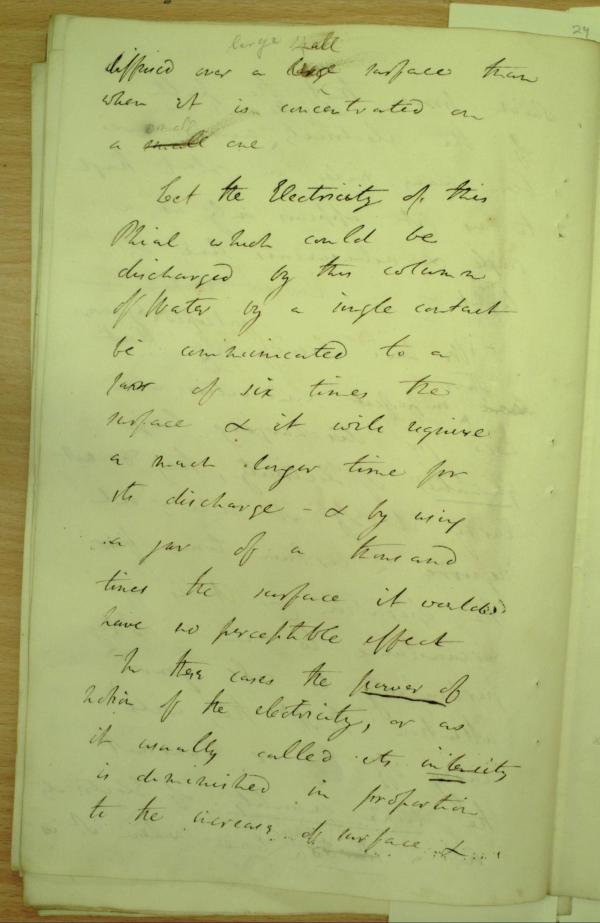 24
large small
diffused over a large surface than
when it is concentrated on
small
a small one
Let the Electricity of this
Phial which could be
discharged by this column
of Water by a single contact
be communicated to a
Jar of six times the
surface & it will require
a much longer time for
its discharge - & by using
a jar of a thousand
times the surface it would
have no perceptible effect
In these cases the power of
action of the electricity, or as
it usually called its intensity
is diminished in proportion
to the increase of surface &